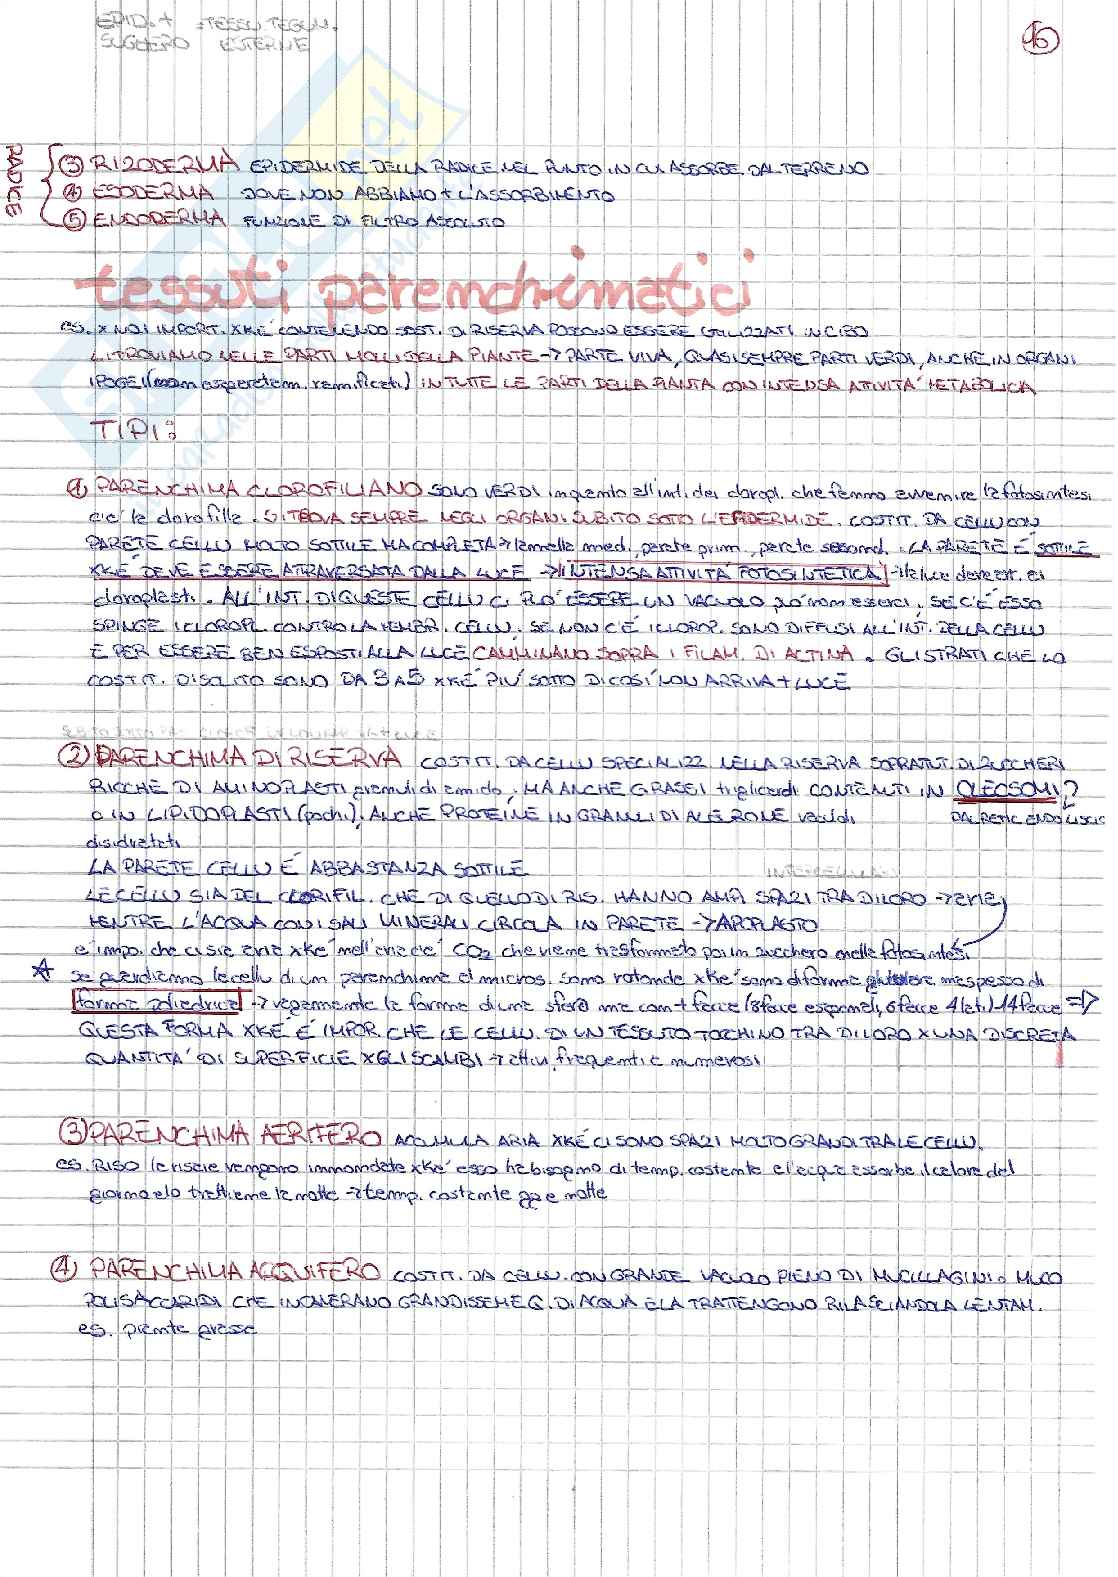 EPID. + = TESSU TEGUM.
SUGHERO ESTERNE
16
RADICE
③ RIZODERMA EPIDERMIDE DELLA RADICE NEL PUNTO IN CUI ASSORBE DAL TERRENO
④ ESODERMA DOVE NON ABBIAMO + L'ASSORBIMENTO
⑤ ENDODERMA FUNZIONE DI FILTRO ASSOLUTO
tessuti parenchimatici
es. x NOI IMPORT. XKÉ CONTENENDO SOST. DI RISERVA POSSONO ESSERE UTILIZZATI IN CIBO
LI TROVIAMO NELLE PARTI MOLLI DELLA PIANTE → PARTE VIVA, QUASI SEMPRE PARTI VERDI, ANCHE IN ORGANI
IPOGEI ramificati) IN TUTTE LE PARTI DELLA PIANTA CON INTENSA ATTIVITÁ METABOLICA
TIPI:
① PARENCHIMA CLOROFILIANO SONO VERDI inquanto all'int. dei cloropl. che fanno avvenire la fotosintesi
c'é la clorofilla. SI TROVA SEMPRE NEGLI ORGANI SUBITO SOTTO L'EPIDERMIDE. COSTIT. DA CELLU CON
PARETE CELLU MOLTO SOTTILE MA COMPLETA → lamella med., parete prim., parete second. LA PARETE É SOTTILE
XKÉ DEVE ESSERE ATTRAVERSATA DALLA LUCE → INTENSA ATTIVITÁ FOTOSINTETICA → la luce deve est. ai
cloroplasti. ALL'INT. DI QUESTE CELLU CI PUÓ ESSERE UN VACUOLO può non esserci, SE C'É ESSO
SPINGE I CLOROPL. CONTRO LA MEMBR. CELLU, SE NON C'É I CLOROP. SONO DIFFUSI ALL'INT. DELLA CELLU
E PER ESSERE BEN ESPOSTI ALLA LUCE CAMMINANO SOPRA I FILAM. DI ACTINA. GLI STRATI CHE LO
COSTIT. DI SOLITO SONO DA 3 A 5 XKÉ PIÚ SOTTO DI COSÍ NON ARRIVA + LUCE
② PARENCHIMA DI RISERVA COSTIT. DA CELLU SPECIALIZZ NELLA RISERVA SOPRATUT. DI ZUCCHERI
RICCHE DI AMINOPLASTI granuli di amido, MA ANCHE GRASSI trigliceridi CONTENUTI IN OLEOSOMI?
O IN LIPIDOPLASTI (pochi), ANCHE PROTEINE IN GRANULI DI ALEURONE vacuoli DAL RETIC. ENDO LISCIO
disidratati
LA PARETE CELLU É ABBASTANZA SOTTILE
LE CELLU SIA DEL CLORIFIL. CHE DI QUELLO DI RIS. HANNO AMPI SPAZI TRA DI LORO → aria
MENTRE L'ACQUA CON DI SALI MINERALI CIRCOLA IN PARETE → APOPLASTO
e' impo. che ci sia aria xké nell'aria c'é CO2 che viene trasformata poi in zucchero nella fotosintesi
☆ se guardiamo le cellu di un parenchima al micros. sono rotonde xké sono di forma ma spesso di
forma poliedrica → vagamente la forma di una sfera ma con + facce (8 facce esagonali, 6 facce 4 lati) 14 facce ⇒
QUESTA FORMA XKÉ É IMPOR. CHE LE CELLU. DI UN TESSUTO TOCCHINO TRA DI LORO X UNA DISCRETA
QUANTITÁ DI SUPERFICIE X GLI SCAMBI → attivi, frequenti e numerosi
③ PARENCHIMA AERIFERO ACCUMULA ARIA XKÉ CI SONO SPAZI MOLTO GRANDI TRA LE CELLU.
es. RISO le risaie vengono innondate xké esso ha bisogno di temp. costante e l'acqua assorbe il calore del
giorno e lo trattiene la notte → temp. costante gg e notte
④ PARENCHIMA ACQUIFERO COSTIT. DA CELLU. CON GRANDE VACUOLO PIENO DI MUCILLAGINI o MUCO
POLISACCARIDI CHE INCAMERANO GRANDISSEME Q. DI ACQUA E LA TRATTENGONO RILASCIANDOLA LENTAM.
es. piante grasse